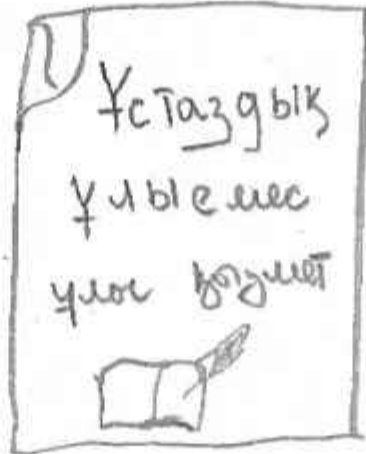 Ұстаздық
Ұлы емес
ұлос қызмет